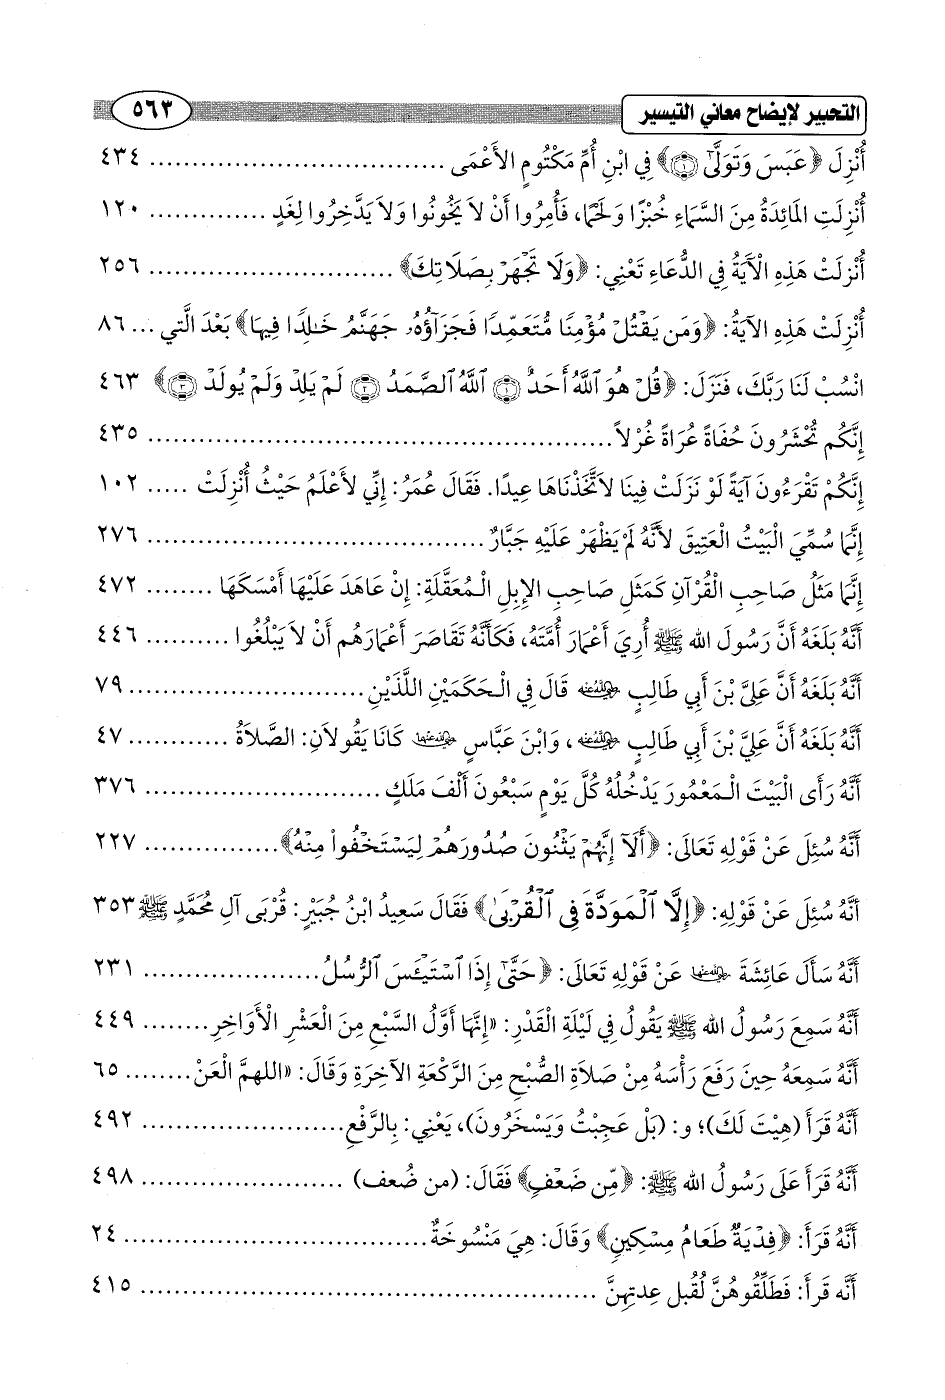 التحبير لإيضاح معاني التيسير ٥٦٣
أُنْزِلَ ﴿عَبَسَ وَتَوَلَّىٰٓ ۝١﴾ فِي ابْنِ أُمِّ مَكْتُومٍ الأَعْمَى .............................. ٤٣٤
أُنْزِلَتِ المَائِدَةُ مِنَ السَّمَاءِ خُبْزًا وَلَحْمًا، فَأُمِرُوا أَنْ لاَ يَخُونُوا وَلاَ يَدَّخِرُوا لِغَدٍ ............ ١٢٠
أُنْزِلَتْ هَذِهِ الْآيَةُ فِي الدُّعَاءِ تَعْنِي: ﴿وَلَا تَجْهَرْ بِصَلَاتِكَ﴾ ......................... ٢٥٦
أُنْزِلَتْ هَذِهِ الآيَةُ: ﴿وَمَن يَقْتُلْ مُؤْمِنًا مُّتَعَمِّدًا فَجَزَآؤُهُۥ جَهَنَّمُ خَـٰلِدًا فِيهَا﴾ بَعْدَ الَّتي ... ٨٦
انْسُبْ لَنَا رَبَّكَ، فَنَزَلَ: ﴿قُلْ هُوَ ٱللَّهُ أَحَدٌ ۝١ ٱللَّهُ ٱلصَّمَدُ ۝٢ لَمْ يَلِدْ وَلَمْ يُولَدْ ۝٣﴾ ٤٦٣
إِنَّكُم تُحْشَرُونَ حُفَاةً عُرَاةً غُرْلاً ............................................... ٤٣٥
إِنَّكُمْ تَقْرَءُونَ آيَةً لَوْ نَزَلَتْ فِينَا لاَتَّخَذْنَاهَا عِيدًا. فَقَالَ عُمَرُ: إِنِّي لأَعْلَمُ حَيْثُ أُنْزِلَتْ ..... ١٠٢
إِنَّمَا سُمِّيَ الْبَيْتُ الْعَتِيقَ لأَنَّهُ لَمْ يَظْهَرْ عَلَيْهِ جَبَّارٌ .................................. ٢٧٦
إِنَّمَا مَثَلُ صَاحِبِ الْقُرْآنِ كَمَثَلِ صَاحِبِ الإِبِلِ الْمُعَقَّلَةِ: إِنْ عَاهَدَ عَلَيْهَا أَمْسَكَهَا ........ ٤٧٢
أَنَّهُ بَلَغَهُ أَنَّ رَسُولَ الله ﷺ أُرِيَ أَعْمَارَ أُمَّتَهُ، فَكَأَنَّهُ تَقَاصَرَ أَعْمَارَهُم أَنْ لاَ يَبْلُغُوا ......... ٤٤٦
أَنَّهُ بَلَغَهُ أَنَّ عَلِيَّ بْنَ أَبِي طَالِبٍ رضي الله عنه قَالَ فِي الْحَكَمَيْنِ اللَّذَيْنِ ........................ ٧٩
أَنَّهُ بَلَغَهُ أَنَّ عَلِيَّ بْنَ أَبِي طَالِبٍ رضي الله عنه، وَابْنَ عَبَّاسٍ رضي الله عنهما كَانَا يَقُولاَنِ: الصَّلاَةُ .......... ٤٧
أَنَّهُ رَأَى الْبَيْتَ الْمَعْمُورَ يَدْخُلُهُ كُلَّ يَوْمٍ سَبْعُونَ أَلْفَ مَلَكٍ ........................ ٣٧٦
أَنَّهُ سُئِلَ عَنْ قَوْلِهِ تَعَالَى: ﴿أَلَآ إِنَّهُمْ يَثْنُونَ صُدُورَهُمْ لِيَسْتَخْفُوا۟ مِنْهُ﴾ .............. ٢٢٧
أَنَّهُ سُئِلَ عَنْ قَوْلِهِ: ﴿إِلَّا ٱلْمَوَدَّةَ فِى ٱلْقُرْبَىٰ﴾ فَقَالَ سَعِيدُ ابْنُ جُبَيْرٍ: قُرْبَى آلِ مُحَمَّدٍ ﷺ ٣٥٣
أَنَّهُ سَأَلَ عَائِشَةَ رضي الله عنها عَنْ قَوْلِهِ تَعَالَى: ﴿حَتَّىٰٓ إِذَا ٱسْتَيْـَٔسَ ٱلرُّسُلُ .................. ٢٣١
أَنَّهُ سَمِعَ رَسُولُ الله ﷺ يَقُولُ فِي لَيْلَةِ الْقَدْرِ: «إِنَّهَا أَوَّلُ السَّبْعِ مِنَ الْعَشْرِ الْأَوَاخِرِ ........ ٤٤٩
أَنَّهُ سَمِعَهُ حِينَ رَفَعَ رَأْسَهُ مِنْ صَلاَةِ الصُّبْحِ مِنَ الرَّكْعَةِ الآخِرَةِ وَقَالَ: «اللهمَّ الْعَنْ ........ ٦٥
أَنَّهُ قَرَأَ (هِيْتَ لَكَ)؛ و: (بَلْ عَجِبْتُ وَيَسْخَرُونَ)، يَعْنِي: بِالرَّفْعِ ..................... ٤٩٢
أَنَّهُ قَرَأَ عَلَى رَسُولُ الله ﷺ: ﴿مِّن ضَعْفٍ﴾ فَقَالَ: (من ضُعف) ..................... ٤٩٨
أَنَّهُ قَرَأَ: ﴿فِدْيَةٌ طَعَامُ مِسْكِينٍ﴾ وَقَالَ: هِيَ مَنْسُوخَةٌ ............................... ٢٤
أَنَّه قَرَأَ: فَطَلِّقُوهُنَّ لُقُبل عِدتهِنَّ .............................................. ٤١٥